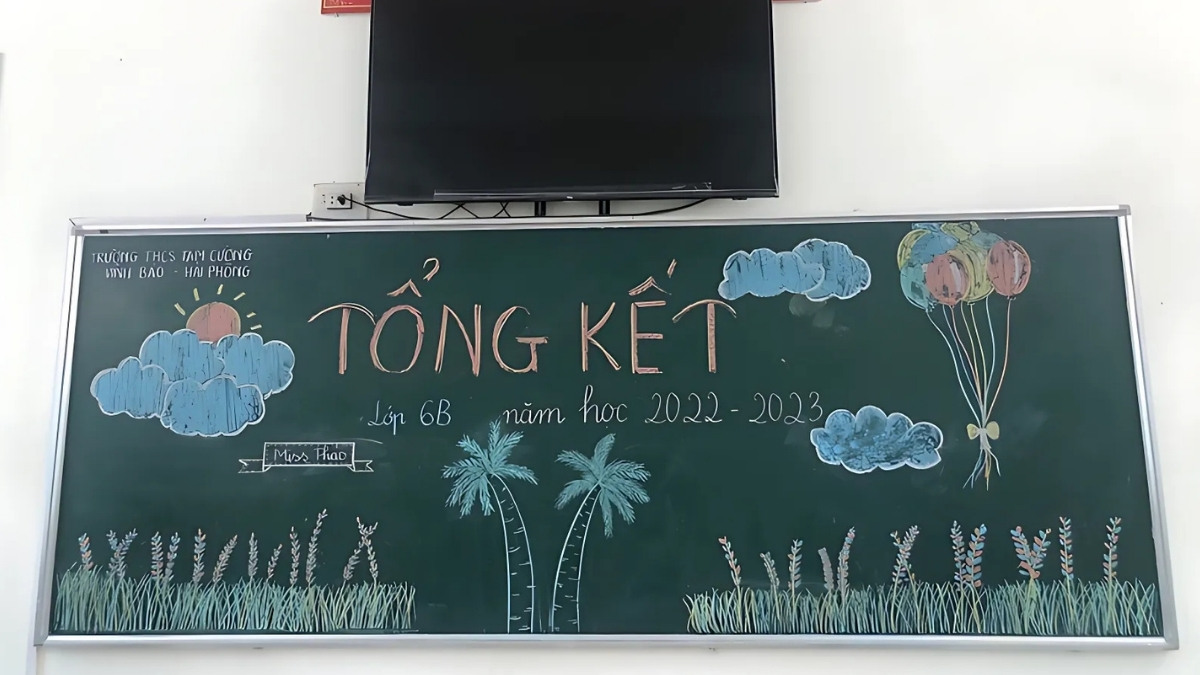 TRƯỜNG THCS TAM CƯỜNG
VĨNH BẢO - HẢI PHÒNG
TỔNG KẾT
Lớp 6B năm học 2022 - 2023
Miss Thao